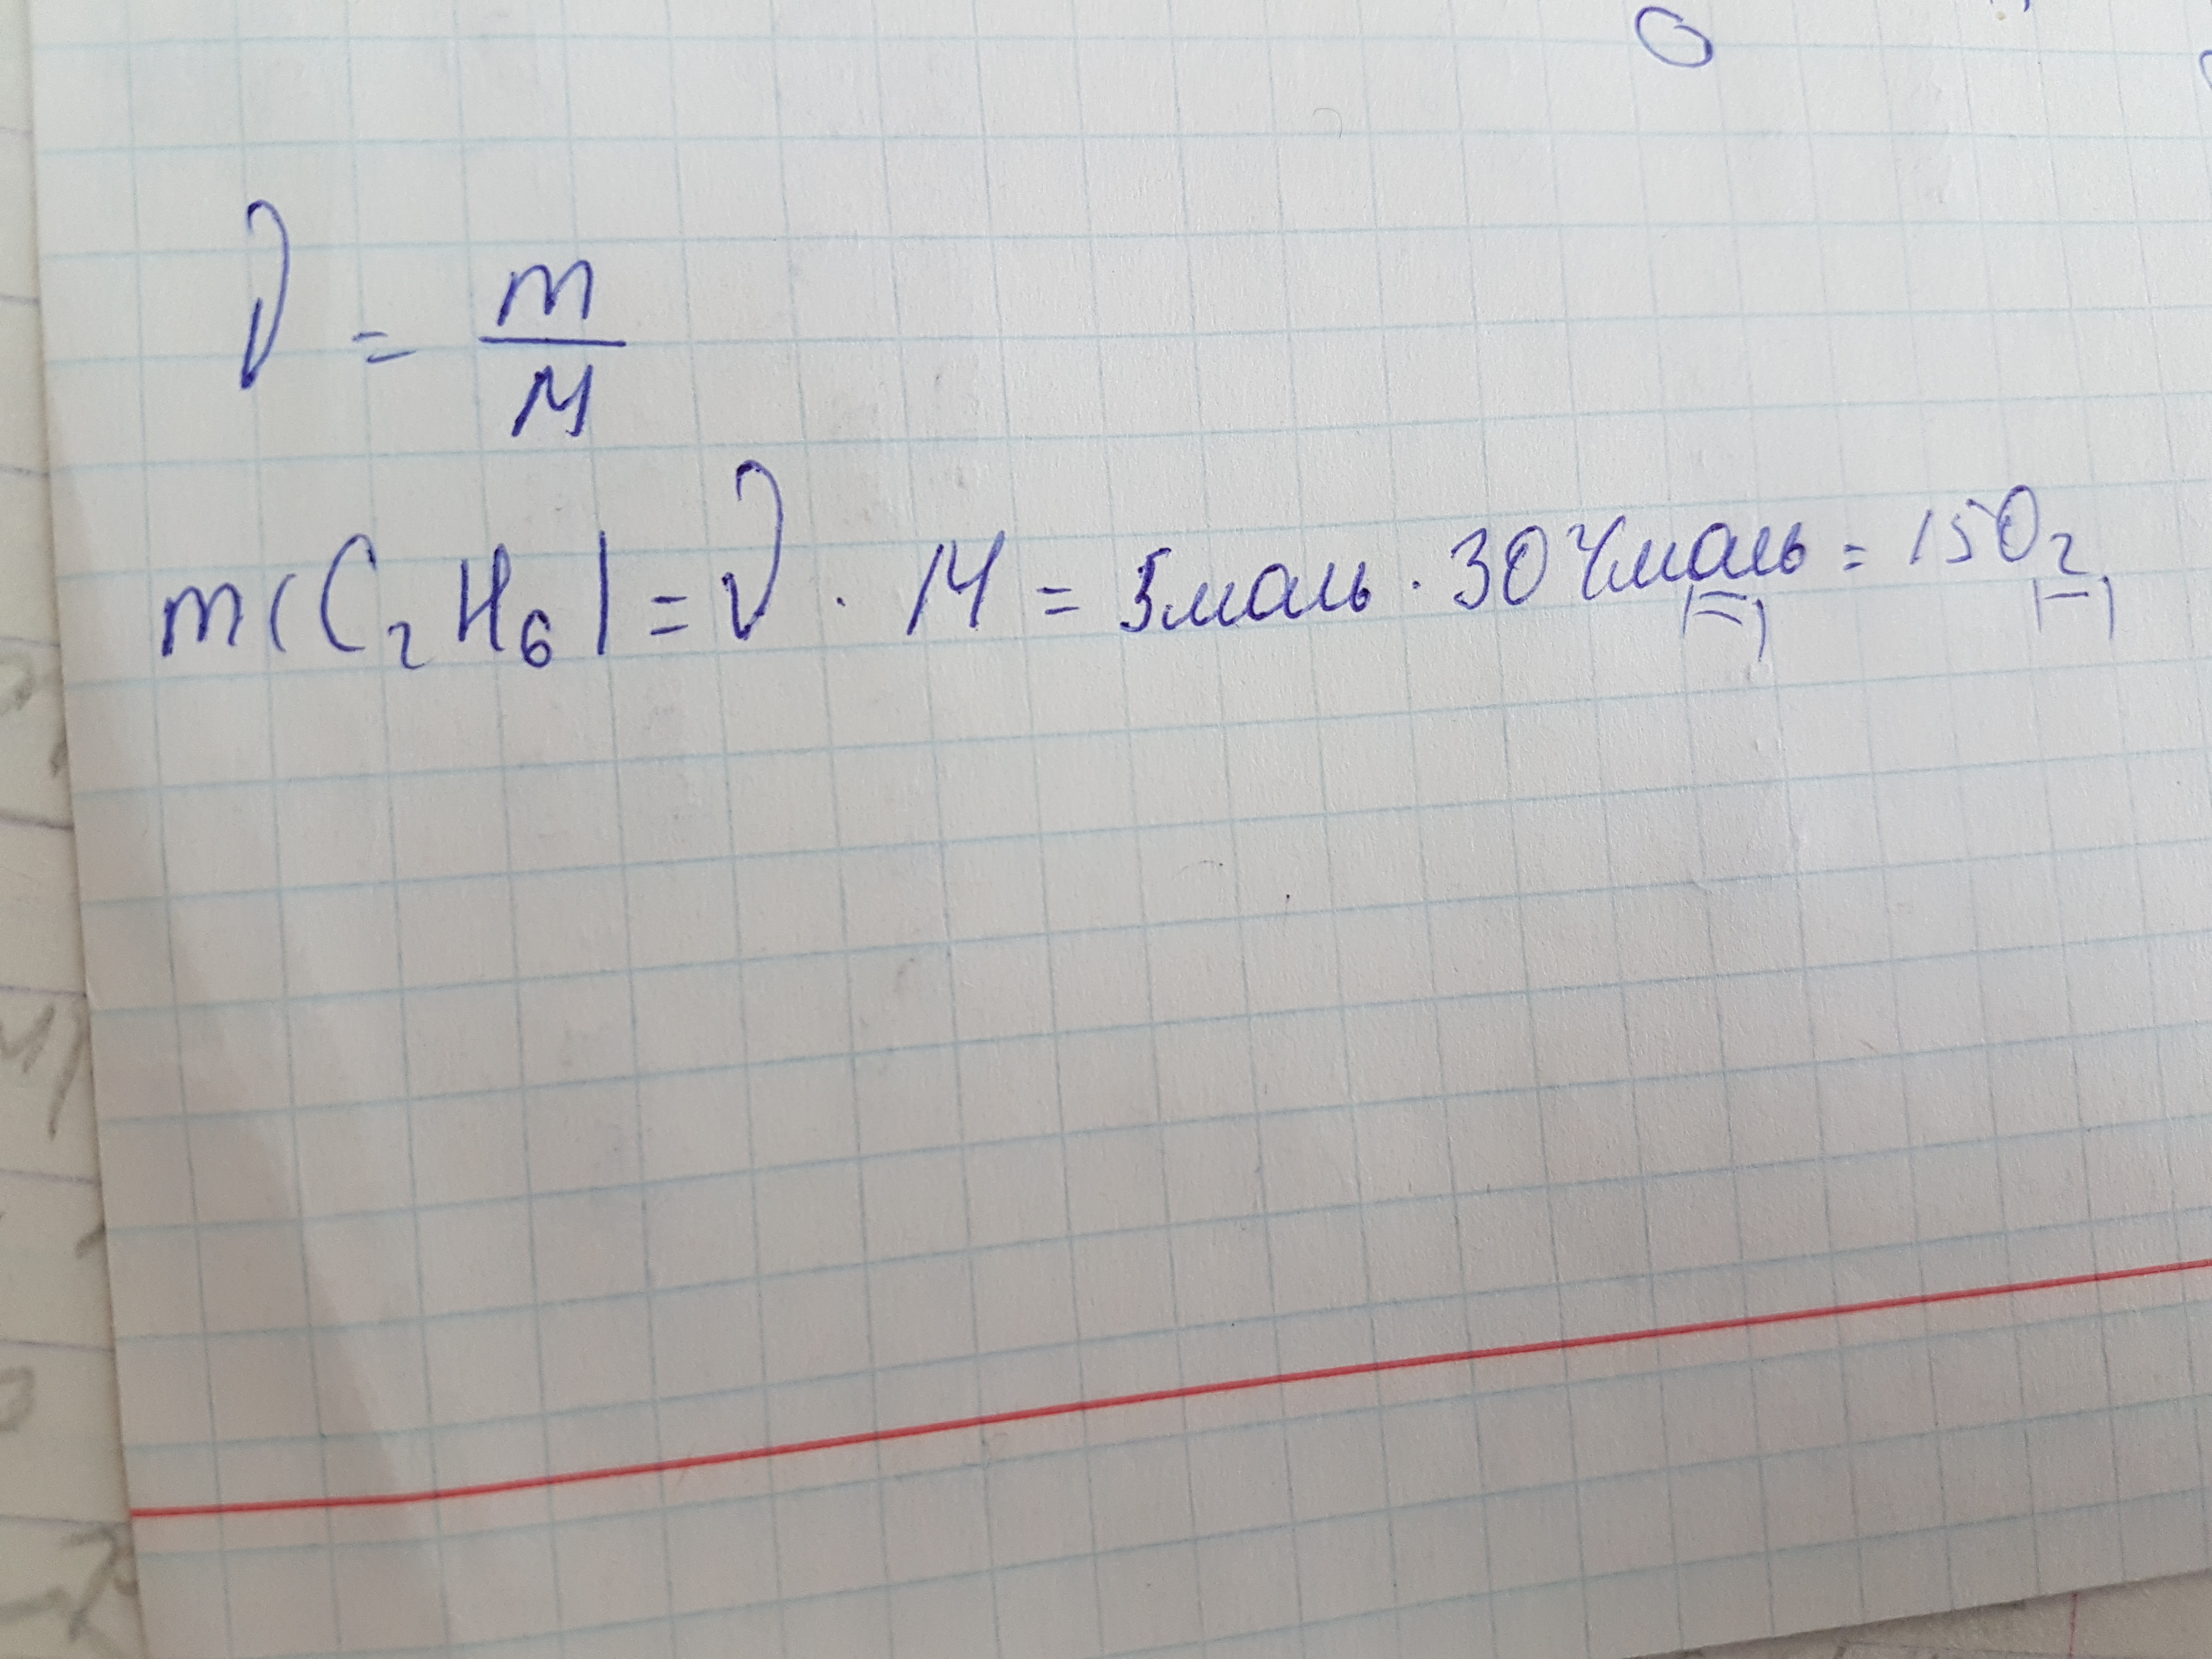 ν = m/M
m(C₂H₆) = ν · M = 5маль · 30 г/маль = 150г